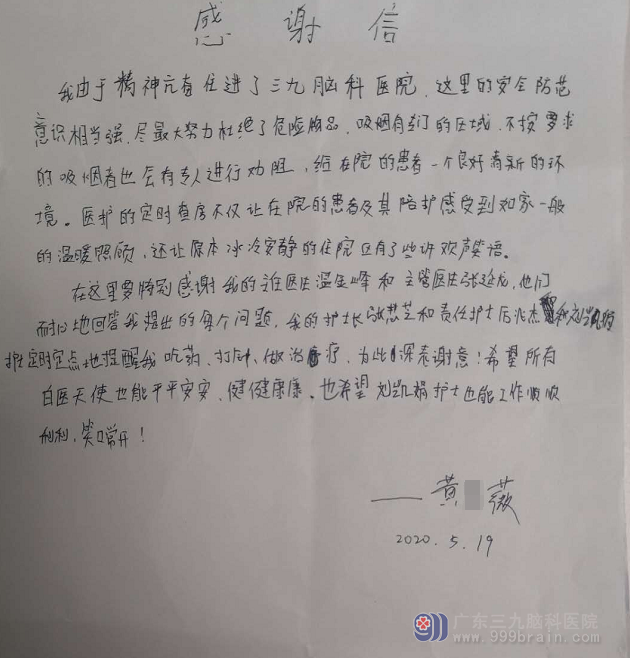 感谢信
我由于精神亢奋住进了三九脑科医院,这里的安全防范
意识相当强,尽最大努力杜绝了危险物品,吸烟有专门的区域,不按要求
的吸烟者也会有专人进行劝阻,给在院的患者一个良好清新的环
境。医护的定时查房不仅让在院的患者及其陪护感受到如家一般
的温暖照顾,还让原本冰冷安静的住院区有了些许欢声笑语。
在这里要特别感谢我的主任医生温金峰和主管医生张延龙,他们
耐心地回答我提出的每个问题,我的护士长张慧芝和责任护士后兆杰和刘凯娟
定时定点地提醒我吃药、打针、做治疗,为此深表谢意!希望所有
白医天使也能平平安安、健健康康。也希望刘凯娟护士也能工作顺顺
利利,笑口常开!
——黄 薇
2020.5.19
广东三九脑科医院
www.999brain.com